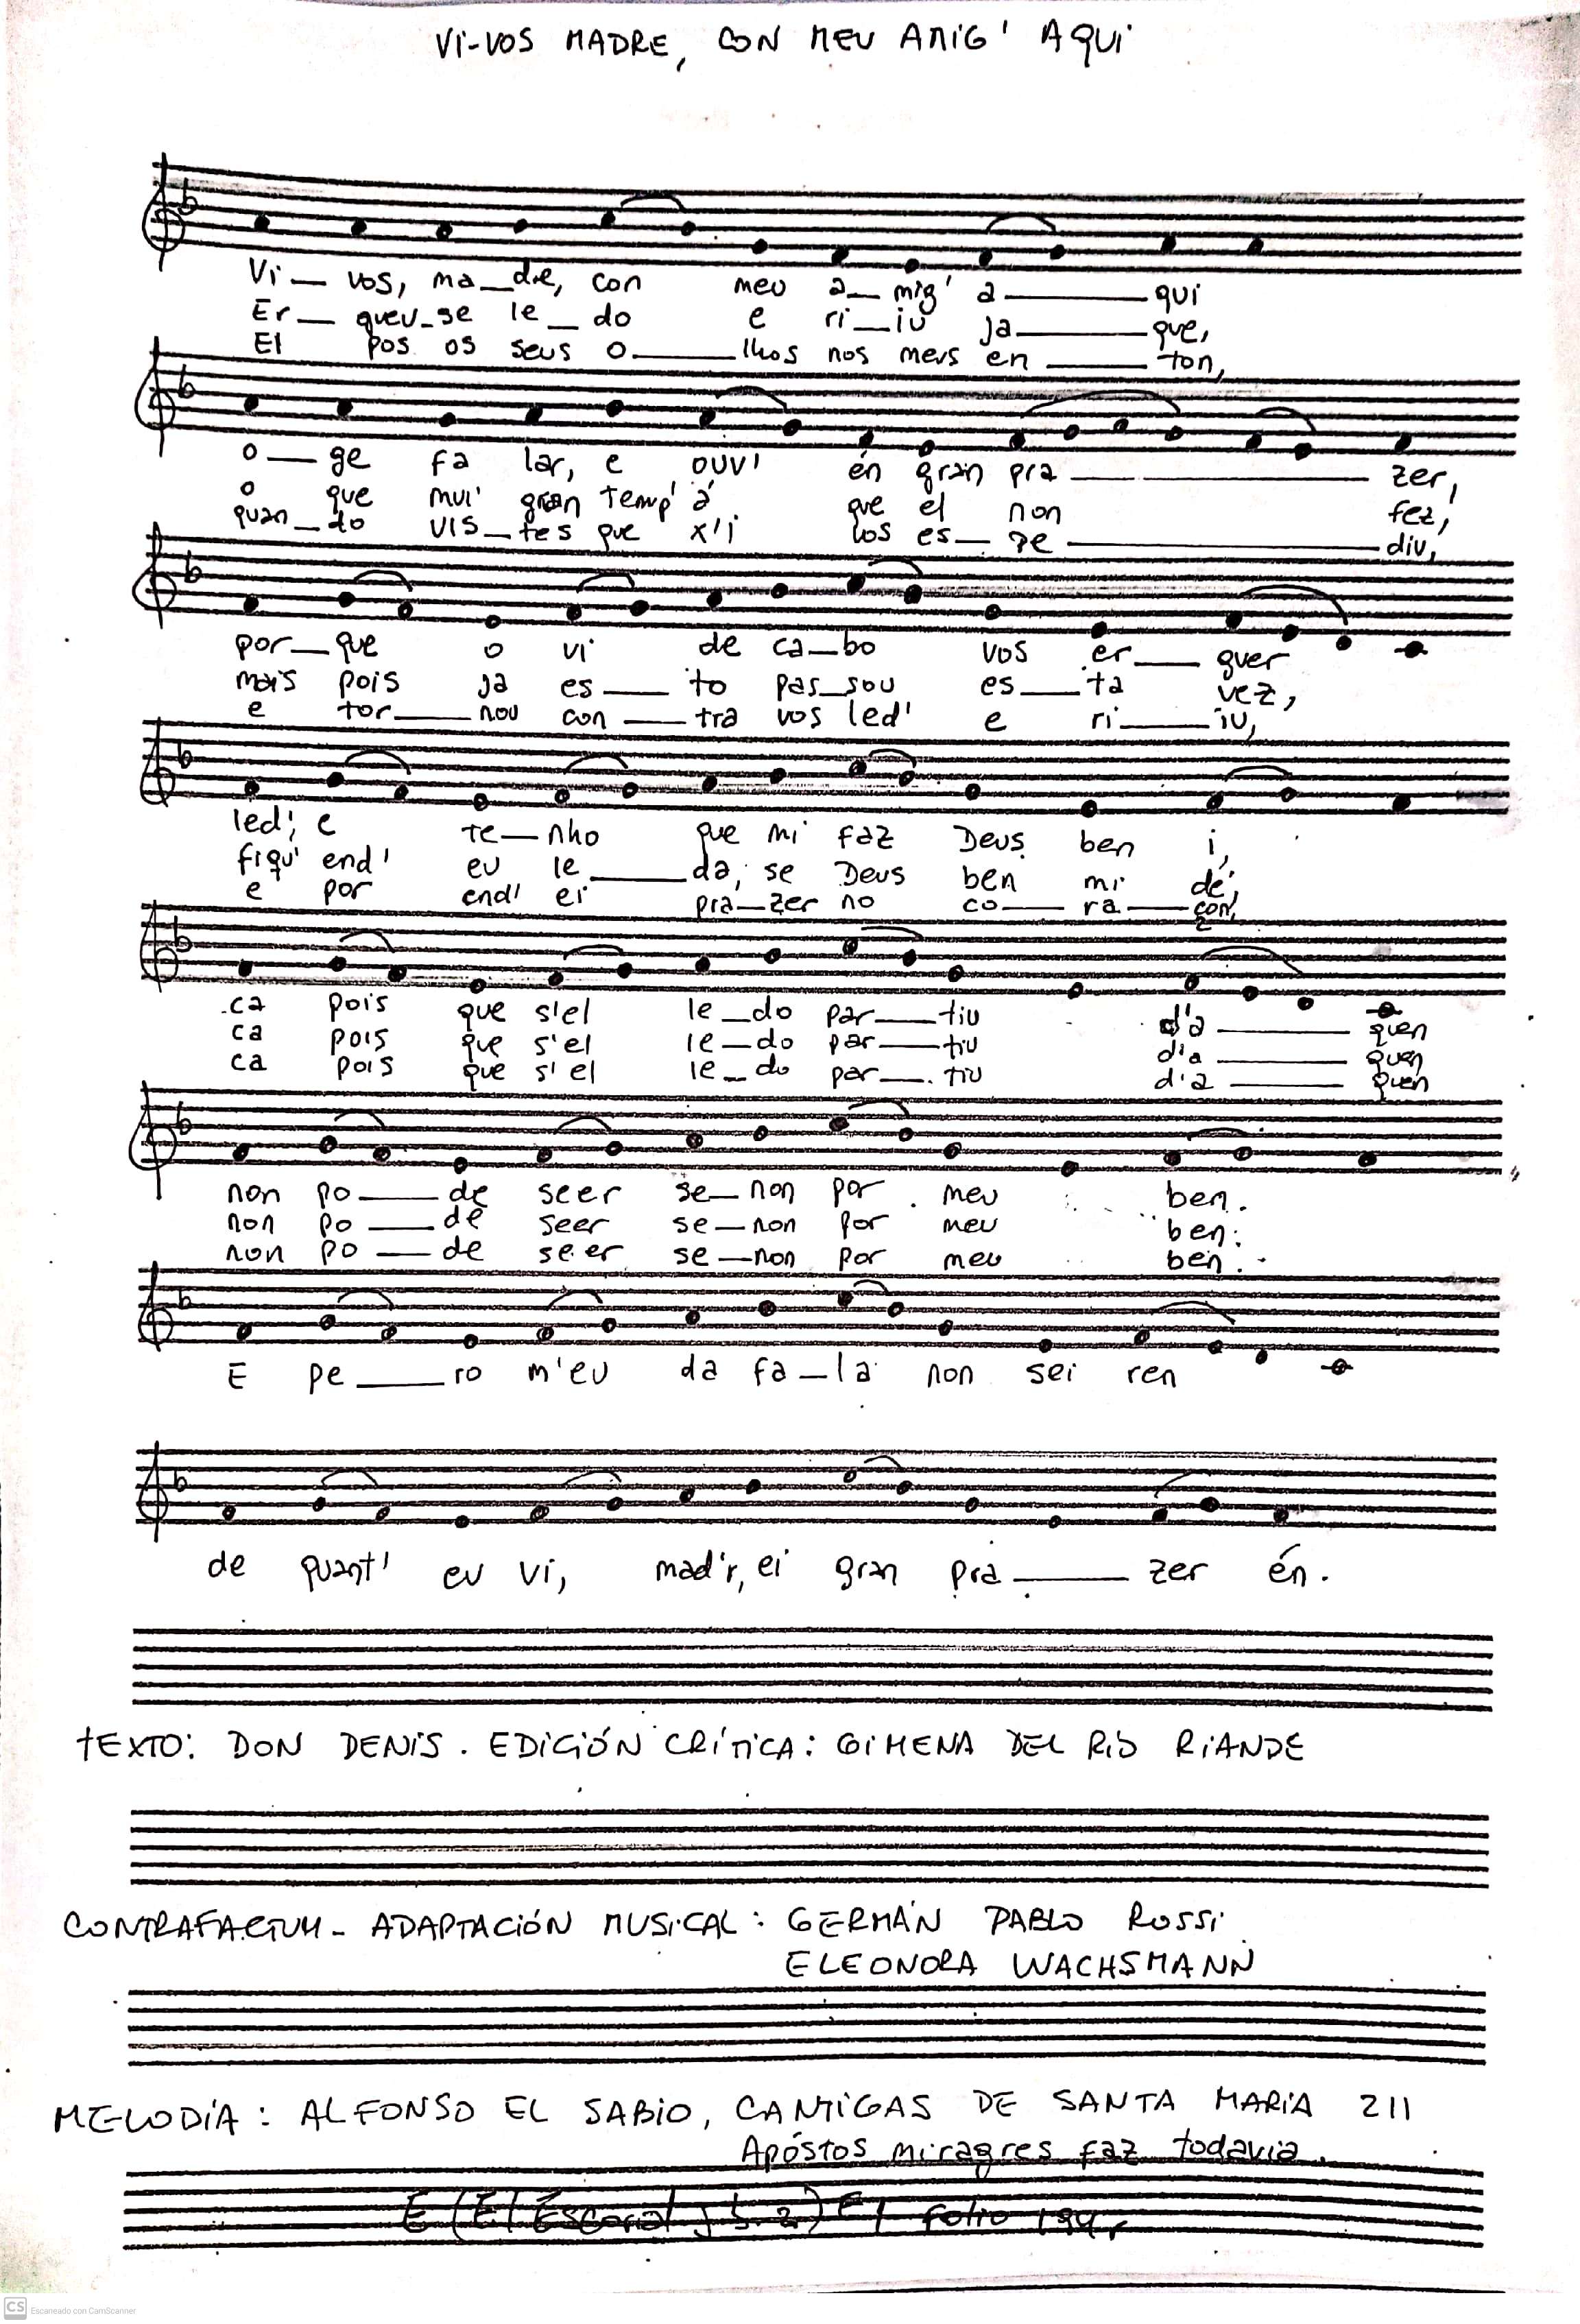 VI-VOS MADRE, CON MEU AMIG' AQUI
Vi— vos, ma—dre, con meu a—mig' a——— qui
Er— queu-se le—do e ri—iu ja——— que,
El pos os seus o———lhos nos meus en———ton,
o—ge fa lar, e ouvi én gran pra———zer,
o que mui' gran temp' á que el non fez,
quan—do vis—tes que x'i vos es—pe———diu,
por—que o vi de ca—bo vos er—guer
mais pois ja es—to pas—sou es—ta vez,
e tor—nou con—tra vos led' e ri—iu,
led', e te—nho que mi faz Deus ben i,
fiqu' end' eu le———da, se Deus ben mi dé,
e por end' ei pra—zer no co—ra—çon,
ca pois que s'el le—do par—tiu d'a———quen
ca pois que s'el le—do par—tiu d'a———quen
ca pois que s'el le—do par—tiu d'a———quen
non po—de seer se—non por meu ben.
non po—de seer se—non por meu ben.
non po—de seer se—non por meu ben.
E pe———ro m'eu da fa—la non sei ren
de quant' eu vi, mad'r, ei gran pra———zer én.
TEXTO: DON DENIS. EDICIÓN CRÍTICA: GIMENA DEL RIO RIANDE
CONTRAFACTUM- ADAPTACIÓN MUSICAL: GERMÁN PABLO ROSSI
ELEONORA WACHSMANN
MELODÍA: ALFONSO EL SABIO, CANTIGAS DE SANTA MARIA 211
Apóstos miragres faz todavia.
E (El Escorial j b 2) folio 194r
CS Escaneado con CamScanner